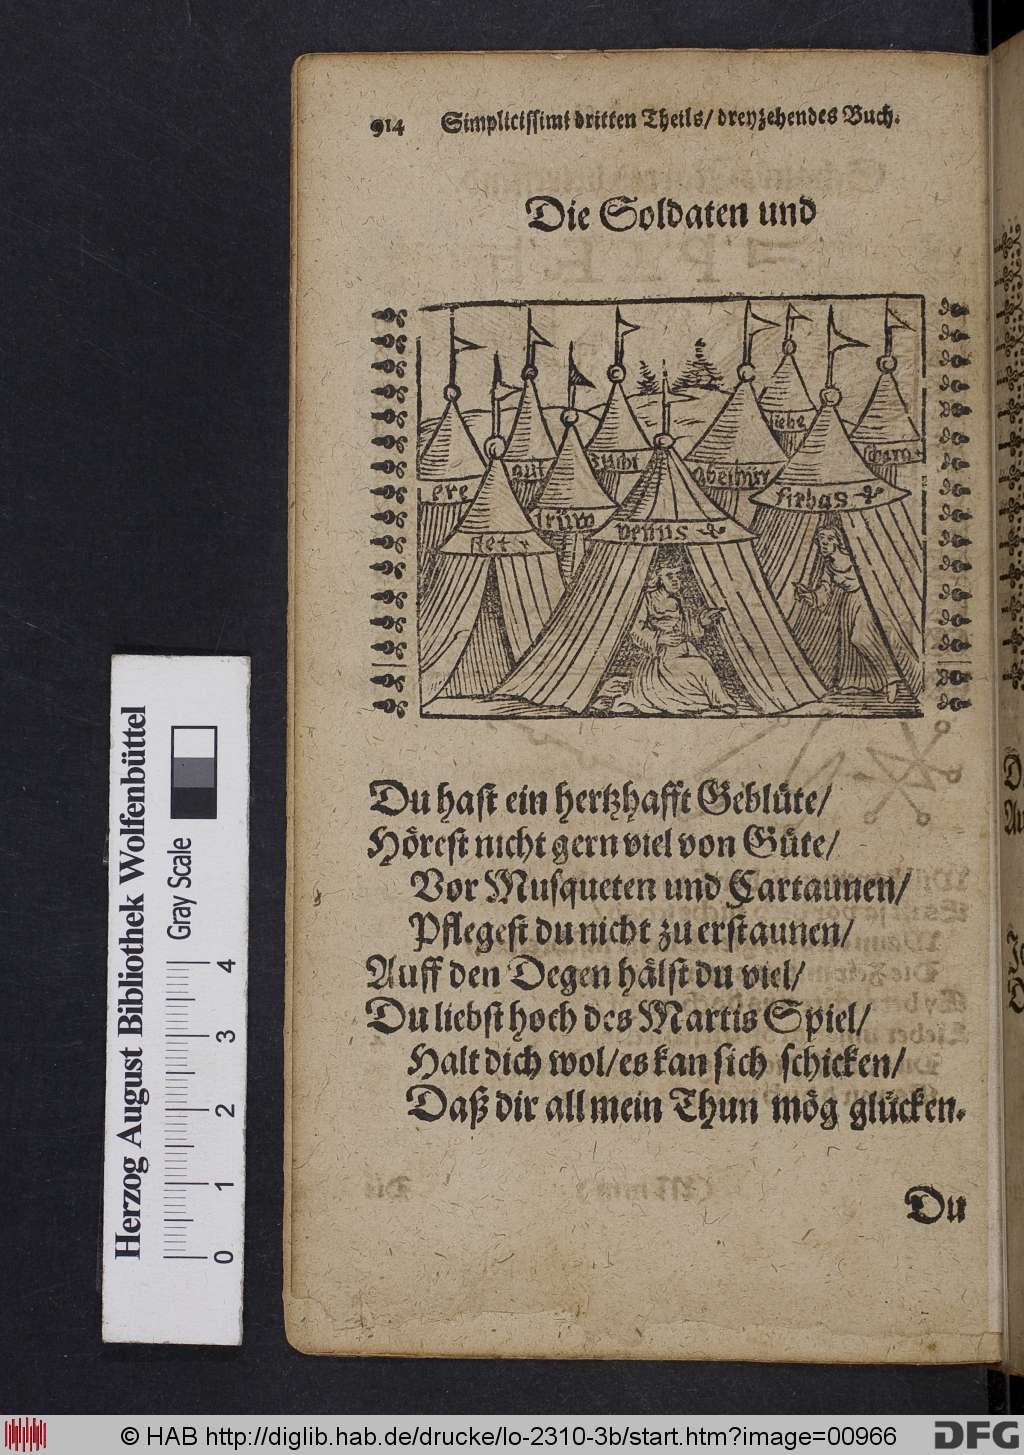 914 Simplicissimi dritten Theils/ dreyzehendes Buch.
Die Soldaten und
liebe
scharo
ere
gut
zucht
trüw
venus
Du hast ein hertzhafft Geblüte/
Hörest nicht gern viel von Güte/
Vor Musqueten und Cartaunen/
Pflegest du nicht zu erstaunen/
Auff den Degen hälst du viel/
Du liebst hoch des Martis Spiel/
Halt dich wol/ es kan sich schicken/
Daß dir all mein Thun mög glücken.
Du
Herzog August Bibliothek Wolfenbüttel
Gray Scale
0 1 2 3 4
© HAB http://diglib.hab.de/drucke/lo-2310-3b/start.htm?image=00966
DFG